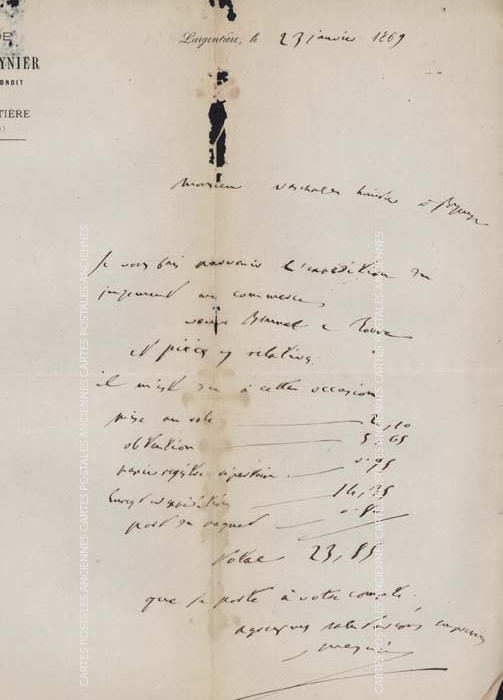 DE
YNIER
DROIT
TIÈRE
Largentière, le 23 janvier 1869
Monsieur huissier à
Je vous fais parvenir l'expédition du
jugement au commerce
veuve Brunel c
et pièces y relatives.
il m'est du à cette occasion
mise au role 2,10
obtention 5,65
papier registre répertoire 0.95
Enregt expédition 14,35
port du paquet 0.80
Total 23,85
que je porte à votre compte.
CARTES POSTALES ANCIENNES CARTES POSTALES ANCIENNES CARTES POSTALES ANCIENNES
CARTES POSTALES ANCIENNES CARTES POSTALES ANCIENNES CARTES POSTALES ANCIENNES